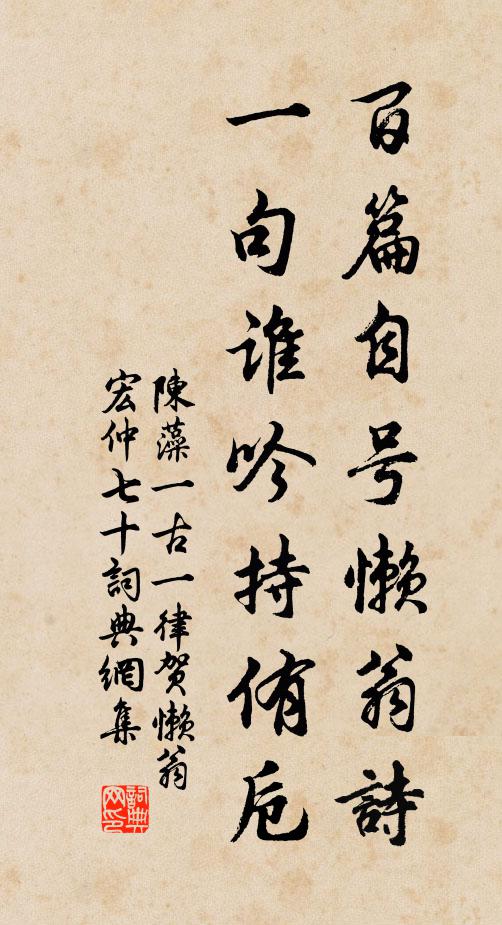 百篇自号懒翁詩
一句谁吟持侑卮
陳藻一古一律贺懒翁
宏仲七十詞典網集
詞典网印